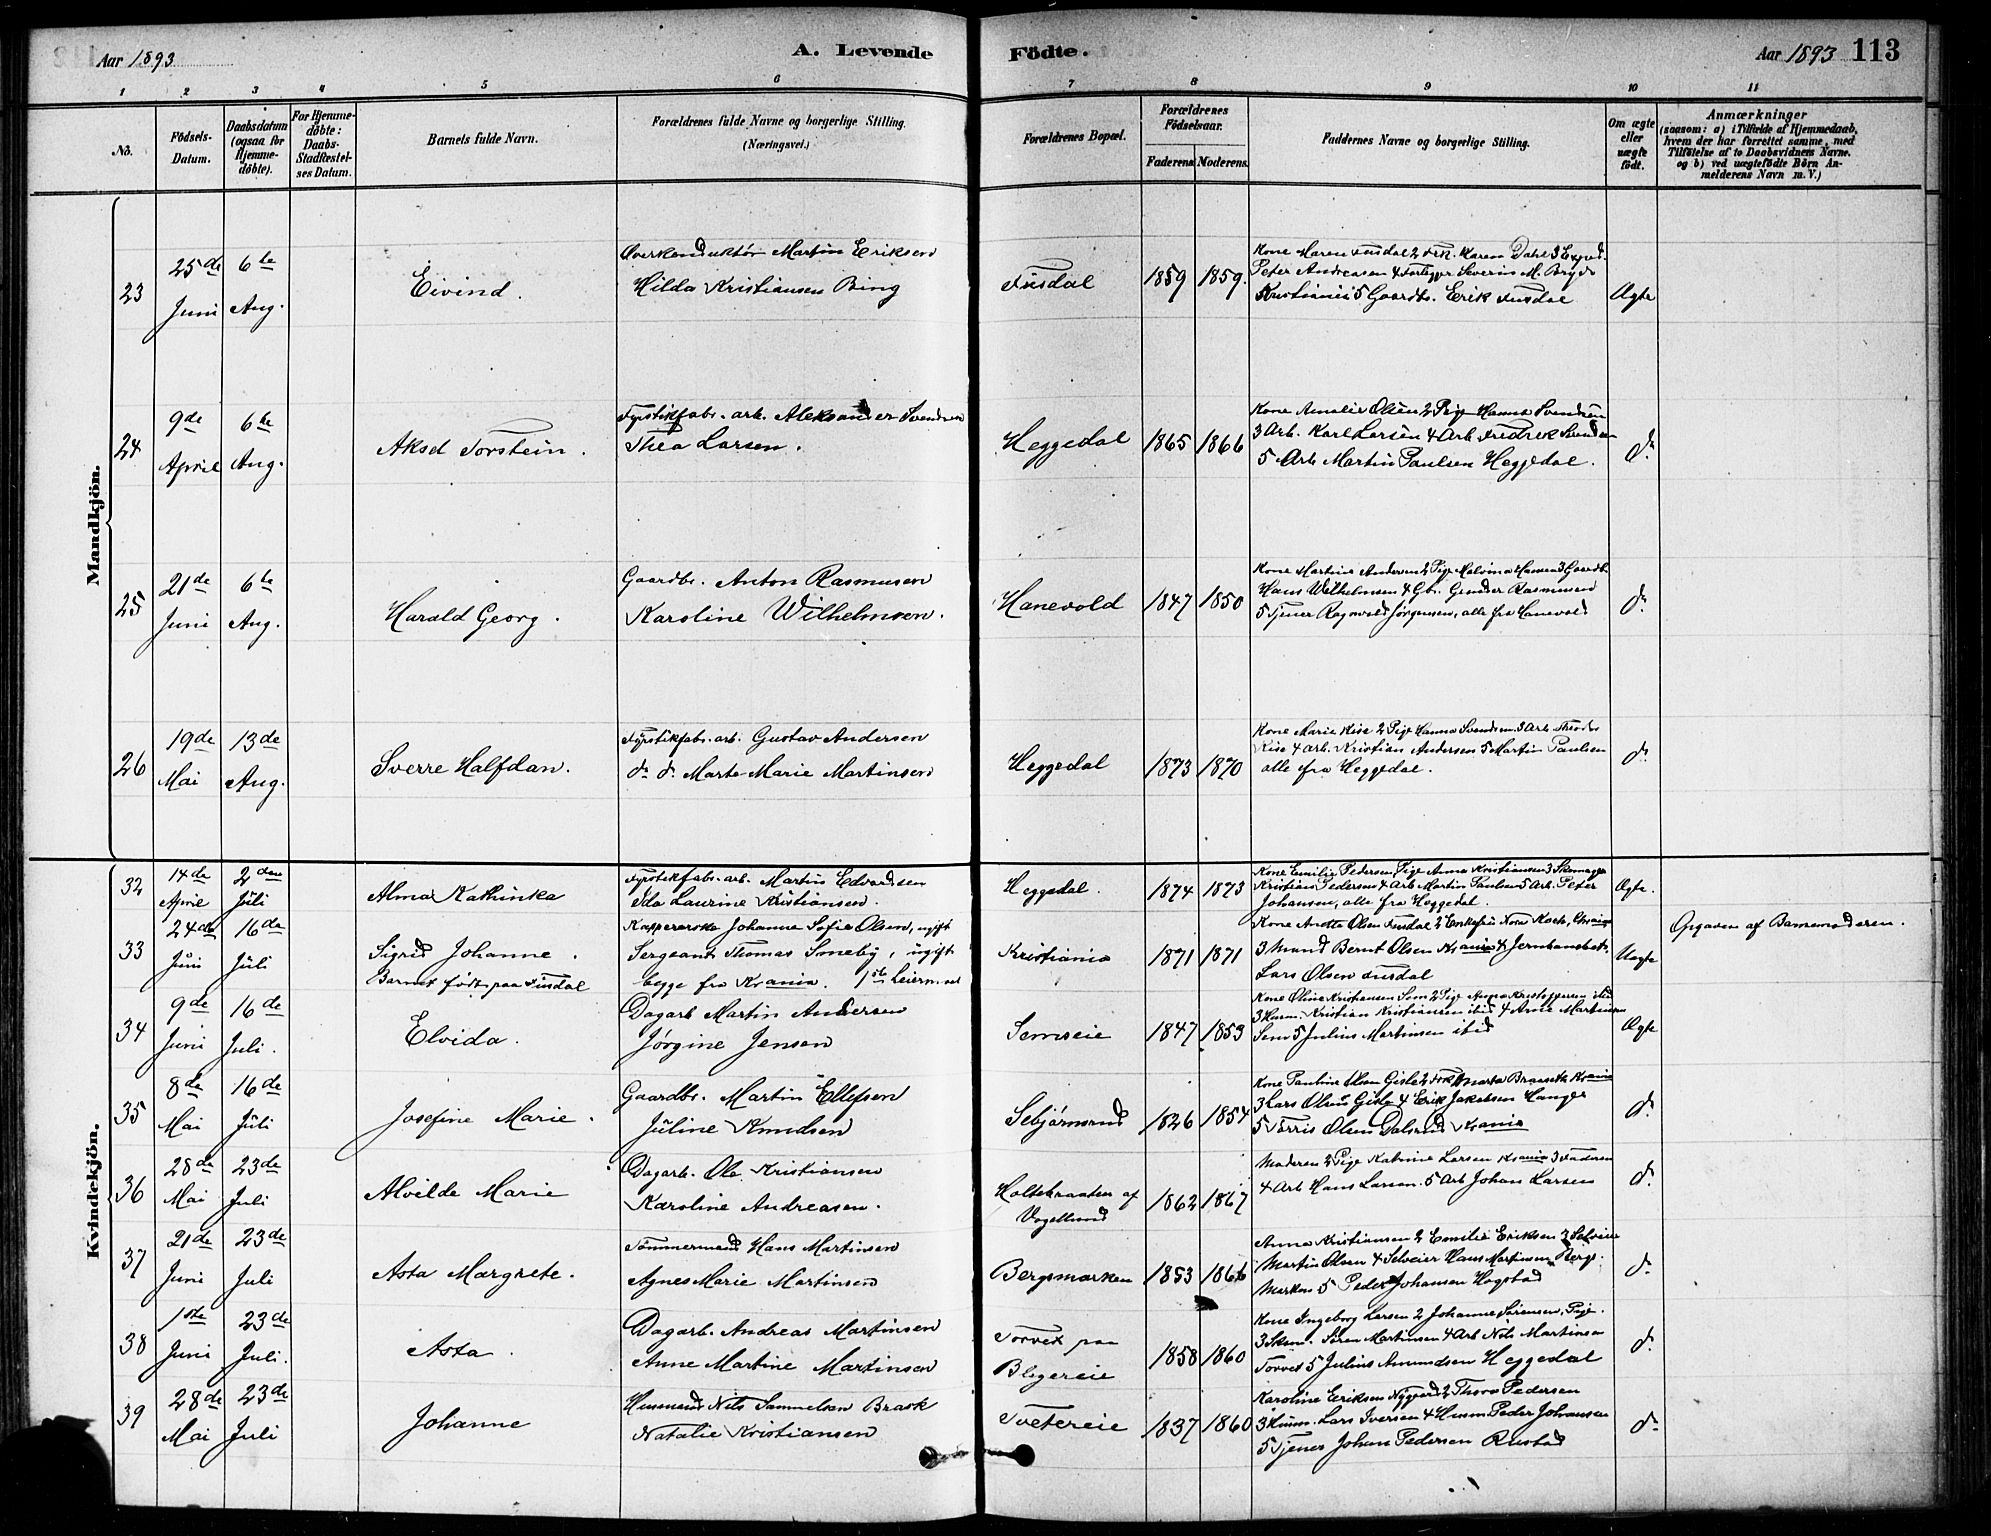 Aar 1893
A. Levende
Födte.
Aar 1893 113
1 2 3 4 5 6 7 8 9 10 11
No.
Födsels-
Datum.
Daabsdatum
(ogsaa for
Hjemme-
døbte).
For Hjemme-
døbte:
Daabs-
Stadfæstel-
ses Datum.
Barnets fulde Navn.
Forældrenes fulde Navne og borgerlige Stilling.
(Næringsvei.)
Forældrenes Bopæl.
Forældrenes
Födselsaar.
Faderens Moderens.
Faddernes Navne og borgerlige Stilling.
Om ægte
eller
uægte
födt.
Anmærkninger
(saasom: a) i Tilfælde af Hjemmedaab,
hvem der har forrettet samme, med
Tilføielse af to Daabsvidners Navne.
og b) ved uægtefödte Börn An-
melderens Navn m. V.)
Mandkjön.
23
25de
Juni
6te
Aug.
Eivind.
Overkonduktör Martin Eriksen
Hilda Kristiansen Bing
Fusdal
1859 1859.
Kone Maren Fusdal 2 Frk. Karen Dahl 3 Exped.
Peter Andreasen 4 Severin M.
Kristiania 5 Gaardbr. Erik Fusdal
Ægte
24
9de
April
6te
Aug.
Aksel Torstein.
Fyrstikfabr. arb. Aleksander Svendsen
Thea Larsen.
Heggedal
1865 1866
Kone Amalie Olsen 2 Pige Hanna Svendsen
3 Arb. Karl Larsen 4 Arb Fredrek Svendsen
5 Arb Martin Paulsen Heggedal.
do
25
21de
Juni
6te
Aug.
Harald Georg.
Gaardbr. Anton Rasmusen
Karoline Wilhelmsen.
Hanevold
1847 1850
Kone Martine Andersen 2 Pige Malvina Hansen 3 Gaardbr.
Hans Wilhelmsen 4 Gbr. Gunder Rasmusen
5 Tjener Ragnvald Jørgensen, alle fra Hanevold
do
26
19de
Mai
13de
Aug.
Sverre Halfdan.
Fyrstikfabr. arb. Gustav Andersen
do do Marte Marie Martinsen
Heggedal
1873 1870
Kone Marie Kise 2 Pige Hanna Svendsen 3 Arb
Kise 4 arb. Kristian Andersen 5 Martin Paulsen
alle fra Heggedal.
do
Kvindekjön.
32
14de
April
2den
Juli
Alma Kathinka
Fyrstikfabr. arb. Martin Edvardsen
Ida Laurine Kristiansen.
Heggedal.
1874 1873
Kone Emilie Pedersen, Pige Anna Kristiansen 3 Skomager
Kristian Pedersen 4 Arb Martin Paulsen 5 Arb. Peter
Johansen, alle fra Heggedal.
Ægte.
33
24de
Juni
16de
Juli
Sigrid Johanne.
Barnet födt paa Fusdal
Johanne Sofie Olsen, ugift
Sergeant Thomas Soneby, ugift
begge fra Krania. 1ste Leiermaal
Kristiania
1871 1871
Kone Anette Olsen Fusdal 2 Enkefru Nora Krania
3 Mand Bernt Olsen Krania 4 Jernbanebet.
Lars Olsen Fusdal
Uægte
Opgaven af Barnemoderen.
34
9de
Juni
16de
Juli.
Elvida.
Dagarb Martin Andersen
Jørgine Jensen
Semseie
1847 1853
Kone Oline Kristiansen Sem 2 Pige Anna Kristoffersen ibid
3 Husm. Kristian Kristiansen ibid 4 Arne Martinsen
Sem 5 Julius Martinsen ibid
Ægte
35
8de
Mai
16de
Juli
Josefine Marie.
Gaardbr. Martin Ellefsen
Juline Knudsen
Sebjørnsrud
1826 1854
Kone Pauline Olsen Gisle 2 Frk Marta Braaeth Krania
3 Lars Olsen Gisle 4 Erik Jakobsen Hanger
5 Torris Olsen Dalsrud Krania
do
36
28de
Mai
23de
Juli
Alvilde Marie
Dagarb. Ole Kristiansen
Karoline Andreasen.
Holtebraaten af
Vogellund
1862 1867
Moderen 2 Pige Katrine Larsen Krania 3 Faderen
4 Arb Hans Larsen. 5 Arb Johan Larsen
do
37
21de
Juni
23de
Juli
Asta Margrete.
Tömmermand Hans Martinsen
Agnes Marie Martinsen
Bergsmarken
1853 1866
Anna Kristiansen 2 Emilie Eriksen 3 Selveier
Martin Olsen 4 Selveier Hans Martinsen Bergs-
Marken 5 Peder Johansen Hogstad
do
38
1ste
Juni
23de
Juli.
Asta.
Dagarb. Andreas Martinsen
Anne Martine Martinsen
Torvet paa
Blegereie
1858 1860
Kone Ingeborg Larsen 2 Johanne Sørensen, Pige.
3 Skom. Søren Martinsen 4 Arb Nils Martinsen
Torvet 5 Julius Amundsen Heggedal
do
39
28de
Mai
23de
Juli
Johanne
Husmand Nils Sammelsen Brask
Natalie Kristiansen
Tvetereie
1837 1860
Karoline Eriksen Nygaard 2 Thora Pedersen
3 Husm. Lars Iversen 4 Husm Peder Johansen
5 Tjener Johan Pedersen Rustad
do